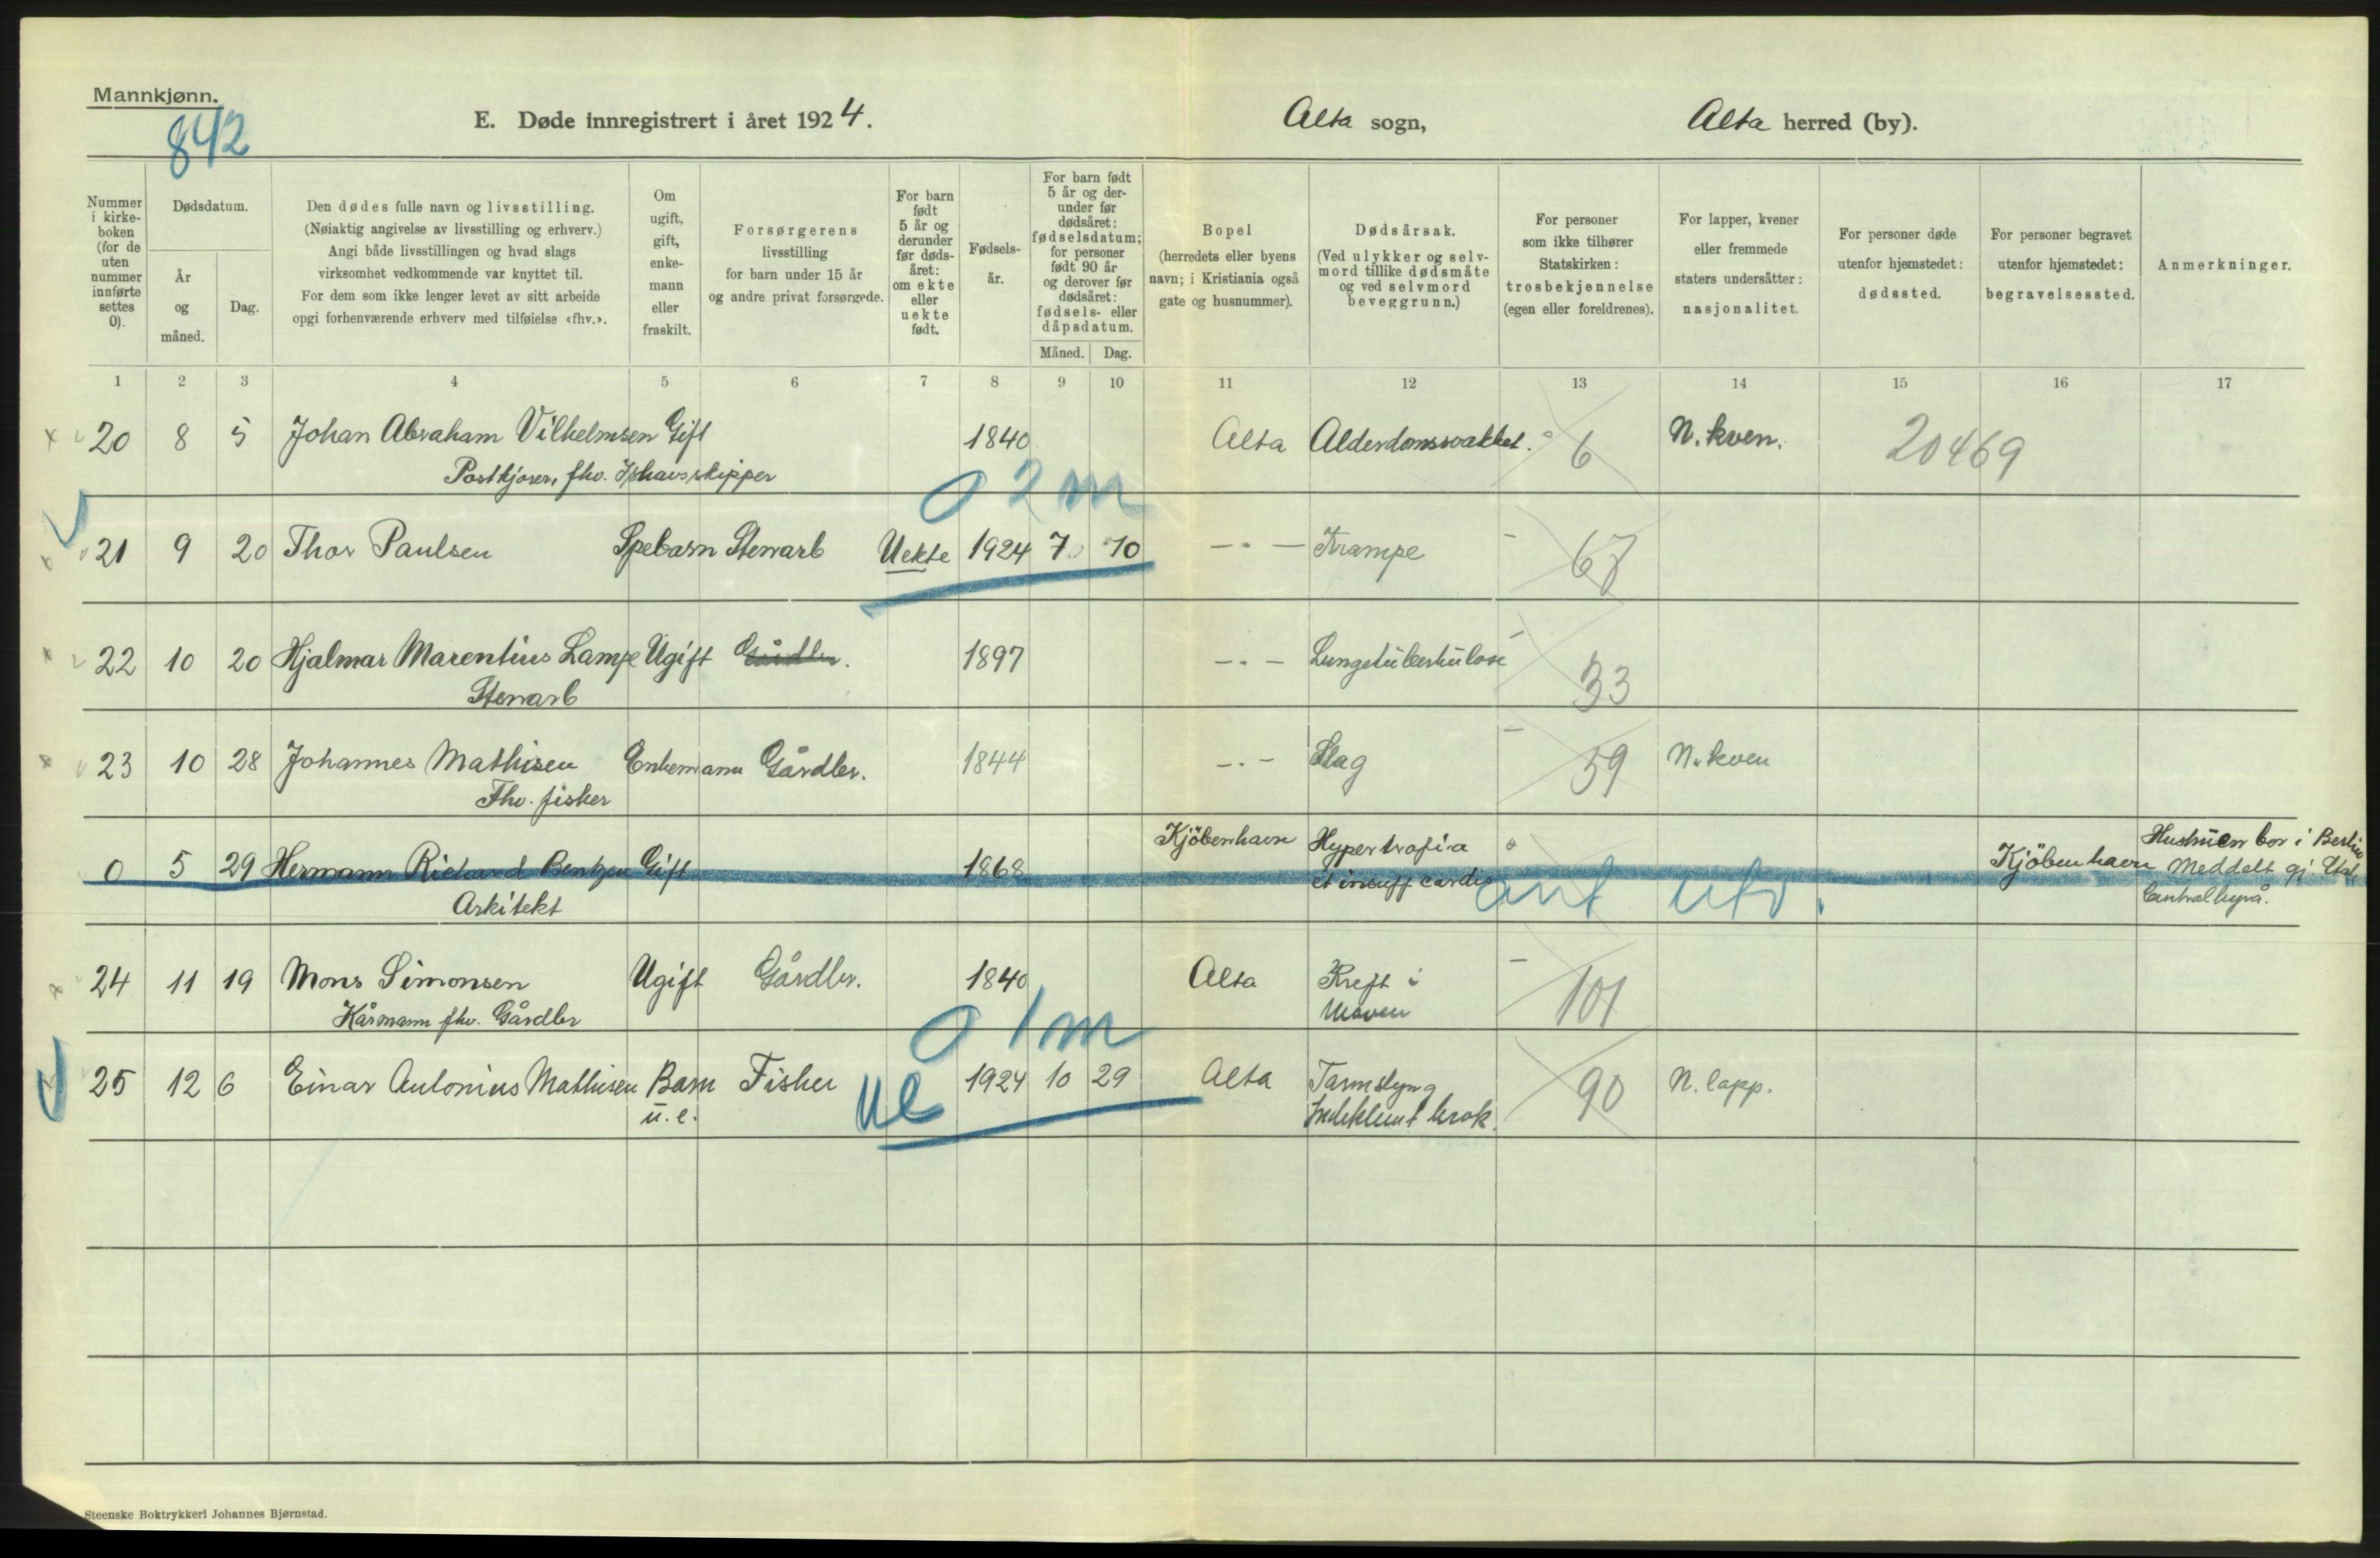 Mannkjønn.
842
E. Døde innregistrert i året 1924.
Alta sogn,
Alta herred (by).
Nummer
i kirke-
boken
(for de
uten
nummer
innførte
settes
0).
Dødsdatum.
År
og
måned.
Dag.
Den dødes fulle navn og livsstilling.
(Nøiaktig angivelse av livsstilling og erhverv.)
Angi både livsstillingen og hvad slags
virksomhet vedkommende var knyttet til.
For dem som ikke lenger levet av sitt arbeide
opgi forhenværende erhverv med tilføielse «fhv.».
Om
ugift,
gift,
enke-
mann
eller
fraskilt.
Forsørgerens
livsstilling
for barn under 15 år
og andre privat forsørgede.
For barn
født
5 år og
derunder
før døds-
året:
om ekte
eller
uekte
født.
Fødsels-
år.
For barn født
5 år og der-
under før
dødsåret:
fødselsdatum;
for personer
født 90 år
og derover før
dødsåret:
fødsels- eller
dåpsdatum.
Måned.
Dag.
Bopel
(herredets eller byens
navn; i Kristiania også
gate og husnummer).
Dødsårsak.
(Ved ulykker og selv-
mord tillike dødsmåte
og ved selvmord
beveggrunn.)
For personer
som ikke tilhører
Statskirken:
trosbekjennelse
(egen eller foreldrenes).
For lapper, kvener
eller fremmede
staters undersåtter:
nasjonalitet.
For personer døde
utenfor hjemstedet:
dødssted.
For personer begravet
utenfor hjemstedet:
begravelsessted.
Anmerkninger.
1 2 3 4 5 6 7 8 9 10 11 12 13 14 15 16 17
20 8 5 Johan Abraham Vilhelmsen Gift 1840 Alta Alderdomssvakhet. 6 N. kven. 20469
Postkjører, fhv. Ishavsskipper
0 2 m
21 9 20 Thor Paulsen Spebarn Stenarb Uekte 1924 7 10 — " — Krampe - 67
22 10 20 Hjalmar Marentius Lampe Ugift Gårdbr. 1897 — " — Lungetuberkulose - 33
Stenarb
23 10 28 Johannes Mathisen Enkemann Gårdbr. 1844 — " — Slag - 59 N. kven
Fhv. fisker
0 5 29 Hermann Richard Bentzen Gift 1868 Kjöbenhavn Hypertrofia Kjöbenhavn Hustruen bor i Berlin
et insuff cardis Meddelt gj. Stat.
Arkitekt Centralbyrå.
ant utv.
24 11 19 Mons Simonsen Ugift Gårdbr. 1840 Alta Kreft i - 101
Kårmann fhv. Gårdbr Maven
0 1 m
25 12 6 Einar Antonius Mathisen Barn Fisker 1924 10 29 Alta Tarmslyng 90 N. lapp.
u.e. ue Indeklemt brok.
Steenske Boktrykkeri Johannes Bjørnstad.